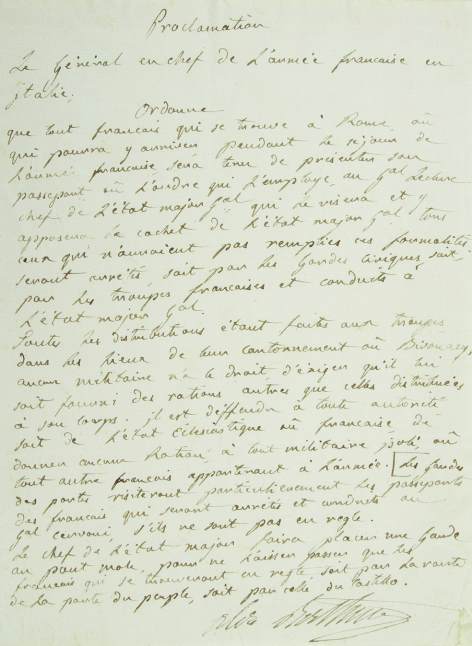 Proclamation
Le Général en chef de L'année française en
Italie.
Ordonne
que tout francais qui se trouve à Rome, où
qui pourra y arriver pendant le sejour de
L'année française, sera tenu de presenter son
passeport où L'ordre qui L'employe, au Gal Leclerc
chef de L'état major Gal, qui le visera et y
apposera le cachet de L'état major Gal, tous
ceux qui n'auraient pas remplies ces formalités
seront arretés, soit par les Gardes civiques, soit
par les troupes françaises et conduits à
L'état major Gal.
Toutes les distributions étant faites aux troupes
dans les lieux de leur cantonnement où Bivouacq,
aucun militaire n'a le droit d'exiger qu'il lui
soit fourni des rations autres que celles distribuées
à son corps; il est deffendu à toute autorité
soit de L'état Eclesiastique où française de
donner aucune Ration à tout militaire isolé où
tout autre français appartenant à L'année. Les Gardes
des portes visiteront particulierement les passeports
des français qui seront arretés et conduits au
Gal Cervoni s'ils ne sont pas en regle.
Le chef de L'état major faira placer une Garde
au pont mole, pour ne Laisser passer que les
français qui se trouveront en regle, soit par La route
de La porte du peuple, soit par celle du Castillo.
Alex Berthier